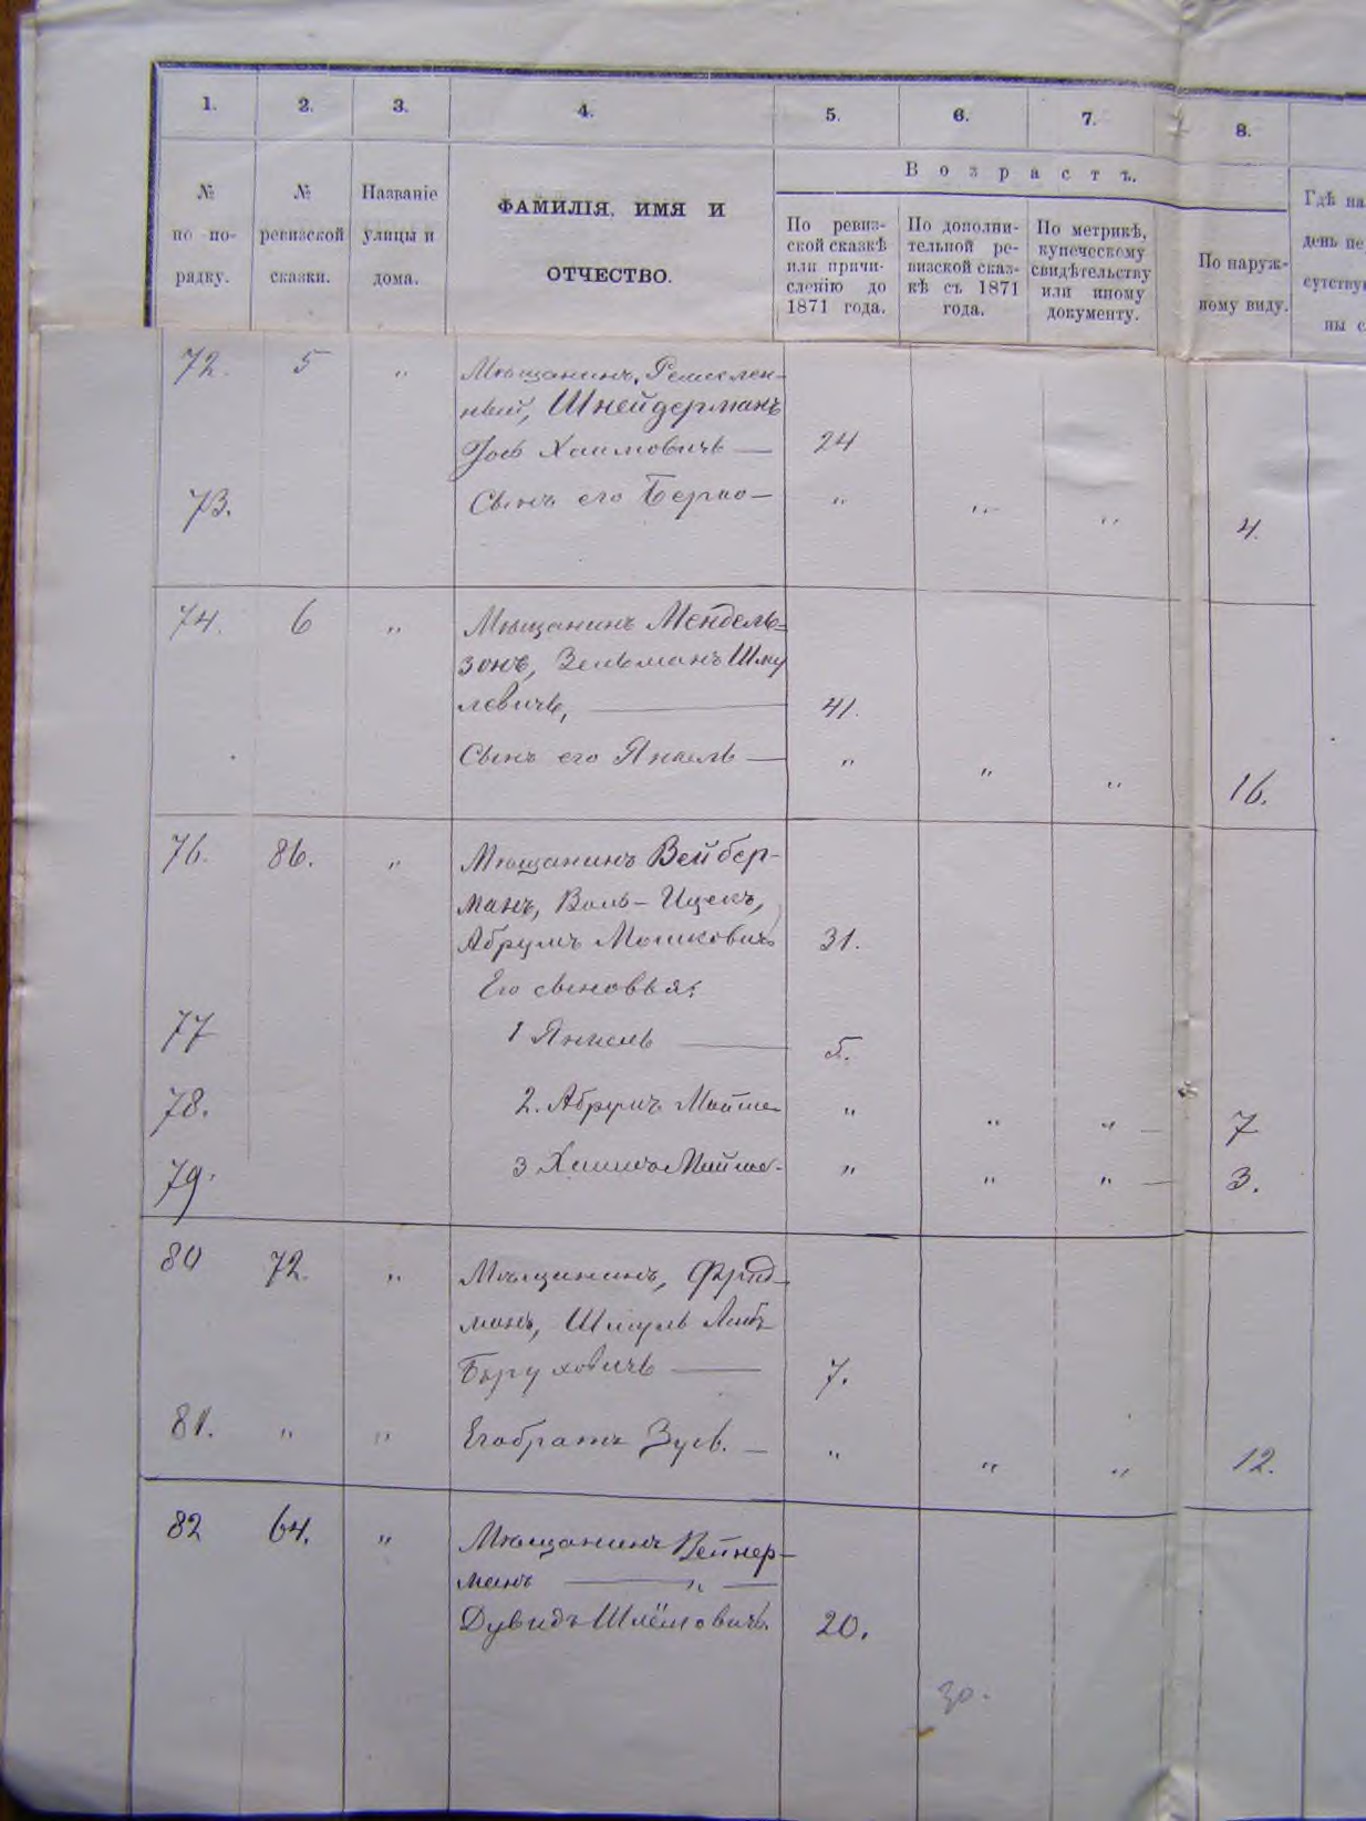 1. 2. 3. 4. 5. 6. 7. 8.
Возрастъ.
№ по по- рядку.
№ ревизской сказки.
Названіе улицы и дома.
ФАМИЛІЯ, ИМЯ И
ОТЧЕСТВО.
По ревиз-
ской сказкѣ
или причи-
сленію до
1871 года.
По дополни-
тельной ре-
визской сказ-
кѣ съ 1871
года.
По метрикѣ,
купеческому
свидѣтельству
или иному
документу.
По наруж-
ному виду.
Гдѣ на
день пе
сутству
ны с
72. 5 „ Мѣщанинъ, Ремеслен-
ный, Шнейдерманъ
Хаимовичъ — 24
73. Сынъ его Берко — „ „ „ 4.
74. 6 „ Мѣщанинъ Мендель-
зонъ, Зельманъ Шму
левичъ, — 41.
Сынъ его Янкель — „ „ „ 16.
76. 86. „ Мѣщанинъ Вейбер-
манъ, Воль-Ицекъ,
Абрумъ Мошковичъ 31.
Его сыновья:
77 1 Янкель — 5.
78. 2. Абрумъ Мойше „ „ „ 7
79. 3 Хаимъ Мойше- „ „ „ 3.
80 72. „ Мѣщанинъ, Фрид-
манъ, Шмуль Лейбъ
Боруховичъ — 7.
81. „ „ Его братъ Зусь. — „ „ „ 12.
82 64. „ Мѣщанинъ Вейнер-
манъ — „ —
Дувидъ Шлёмовичъ. 20.
30.